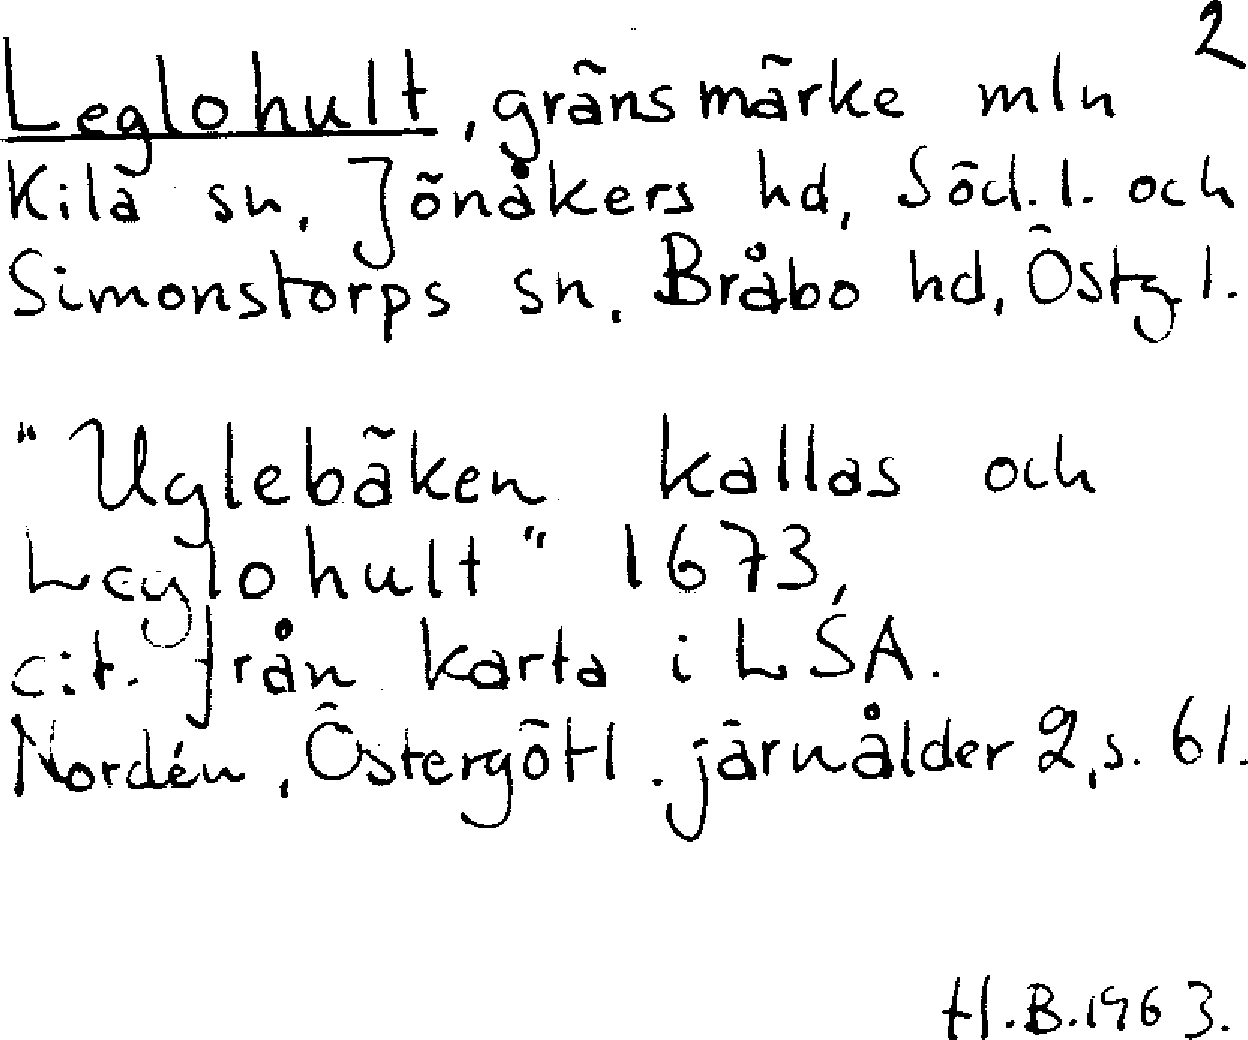 2
Leglohult, gränsmärke mln
Kila sn, Jönåkers hd, Söd.l. och
Simonstorps sn, Bråbo hd, Östg.l.
"Uglebäken kallas och
Leglohult" 1673,
cit. från karta i LSA.
Nordén, Östergötl. järnålder 2, s. 61.
H.B. 1963.